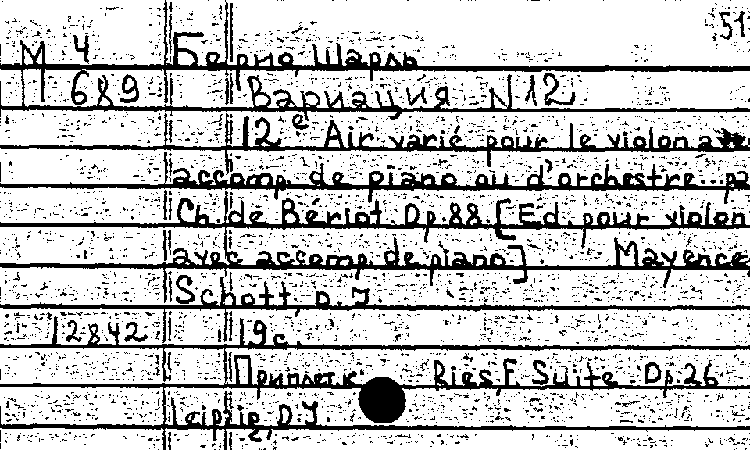 51
М 4 Берио, Шарль
П 689 Вариация N 12
12e Air varié pour le violon avec
accomp. de piano ou d'orchestre.. pa
Ch. de Bériot. Op. 88. [Ed. pour violon
avec accomp. de piano]. Mayence
Schott, D. J.
12842 19 с.
Приплет. к: Ries, F. Suite. Op. 26
Leipzig, D. J.